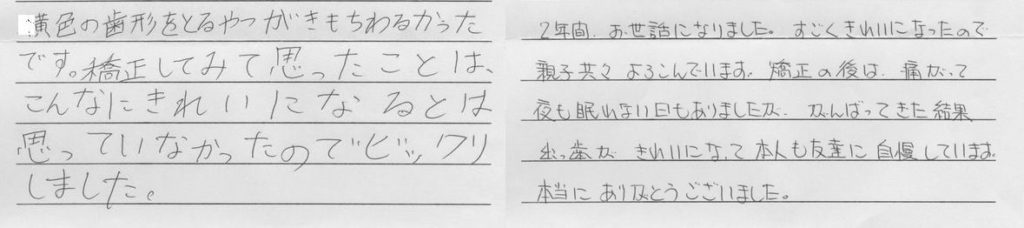 黄色の歯形をとるやつがきもちわるかった
です。矯正してみて思ったことは、
こんなにきれいになるとは
思っていなかったのでビックリ
しました。
2年間、お世話になりました。すごくきれいになったので
親子共々よろこんでいます。矯正の後は、痛がって
夜も眠れない日もありましたが、がんばってきた結果
出っ歯がきれいになって本人も友達に自慢しています。
本当にありがとうございました。